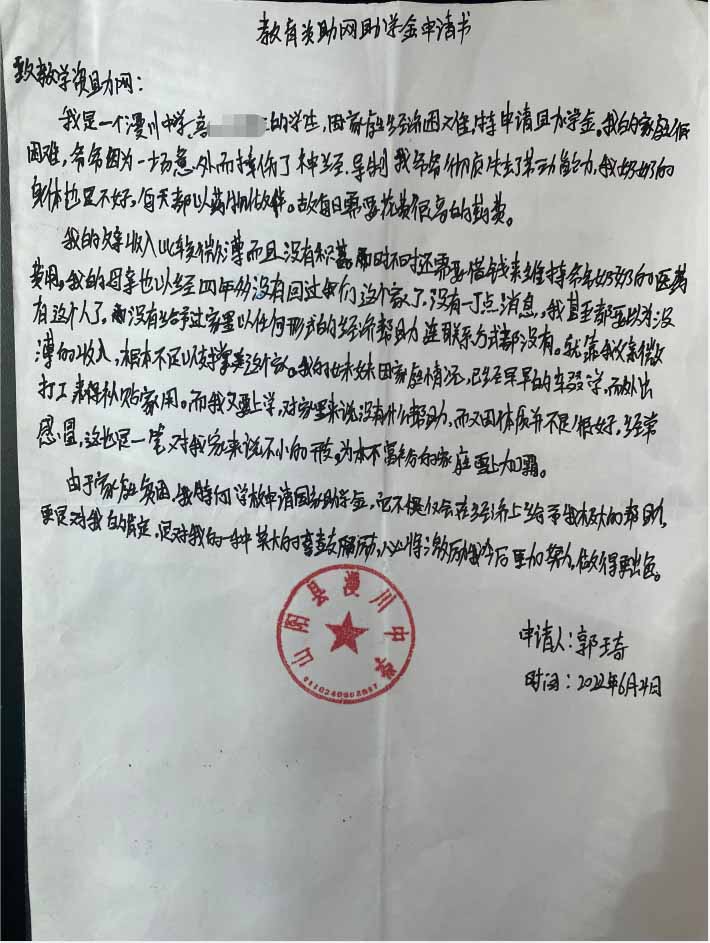 教育资助网助学金申请书
致教学资助网：
我是一个漫川中学高 的学生，因家庭经济困难，特申请助学金。我的家庭很
困难，爷爷因为一场意外而撞伤了神经，导制我爷爷彻底失去了劳动能力，我奶奶的
身体也是不好，每天都以药物做伴。故每日需要花费很高的药费。
我的父亲收入比较微薄而且没有积蓄，而时不时还需要借钱来维持爷爷奶奶的医药
费用，我的母亲也以经四年多没有回过我们这个家了，没有一丁点消息，我甚至都要以为没
有这个人了，没有给予过家里以任何形式的经济帮助，连联系方式都没有。就靠我父亲微
薄的收入，根本不足以支撑类这个家。我的妹妹因家庭情况，已经早早的辍学，而外出
打工来得补贴家用。而我又要上学，对家里来说没有什么帮助，而又因体质并不是很好，经常
感冒，这也是一笔对我家来说不小的开支，为本不富裕的家庭雪上加霜。
由于家庭贫困，我特向学校申请国家助学金，它不仅仅会在经济上给予我极大的帮助，
更是对我的肯定，是对我的一种莫大的鼓励，必将激励我今后更加努力，做得更出色。
山阳县漫川中学
申请人：郭玉奇
时间：2022年6月21日